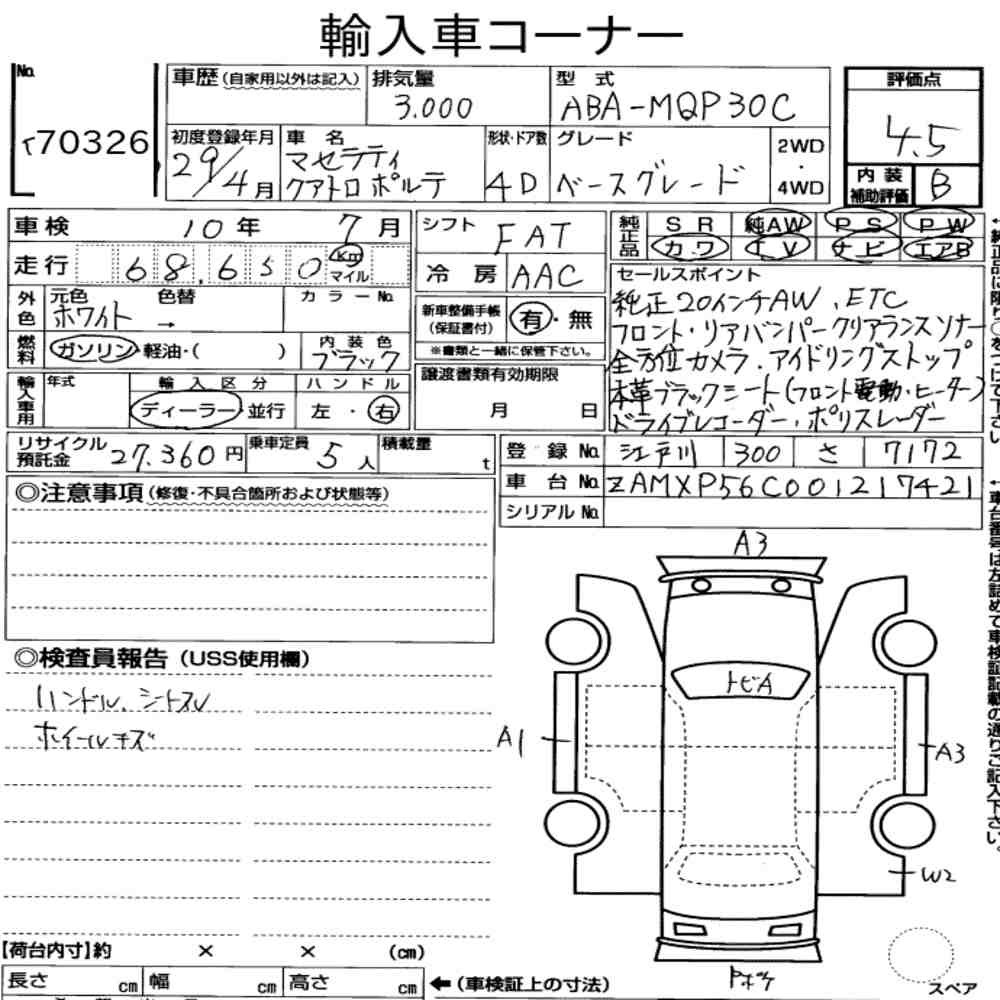 輸入車コーナー
No.
70326
車歴(自家用以外は記入)
排気量
3.000
型 式
ABA-MQP30C
評価点
4.5
初度登録年月
29/4月
車 名
マセラティ
クアトロポルテ
形状・ドア数
4D
グレード
ベースグレード
2WD
・
4WD
内 装
補助評価
B
車検 10年 7月
走行 68,650 Km
マイル
外色
元色 色替
ホワイト →
カラーNo.
燃料
ガソリン・軽油・( )
内 装 色
ブラック
輸入車用
年式
輸 入 区 分
ディーラー・並行
ハ ン ド ル
左・右
シフト
FAT
冷 房
AAC
新車整備手帳
(保証書付)
有・無
※書類と一緒に保管下さい。
譲渡書類有効期限
月 日
純正品
S R 純AW P S P W
カ ワ T V ナ ビ エアB
セールスポイント
純正20インチAW、ETC
フロント・リアバンパークリアランスソナー
全方位カメラ、アイドリングストップ
本革ブラックシート(フロント電動・ヒーター)
ドライブレコーダー・ポリスレーダー
←純正品に限り○をつけて下さい
リサイクル
預託金
27.360円
乗車定員
5人
積載量
t
登 録 No. 江戸川 300 さ 7172
車 台 No. ZAMXP56C001217421
シリアル No.
←車台番号は左詰めで車検証記載の通りご記入下さい。
◎注意事項(修復・不具合箇所および状態等)
◎検査員報告(USS使用欄)
ハンドル、シートスレ
ホイールキズ
A3
トビA
A1
A3
W2
スペア
【荷台内寸】約 × × (cm)
長さ cm 幅 cm 高さ cm
←(車検証上の寸法)